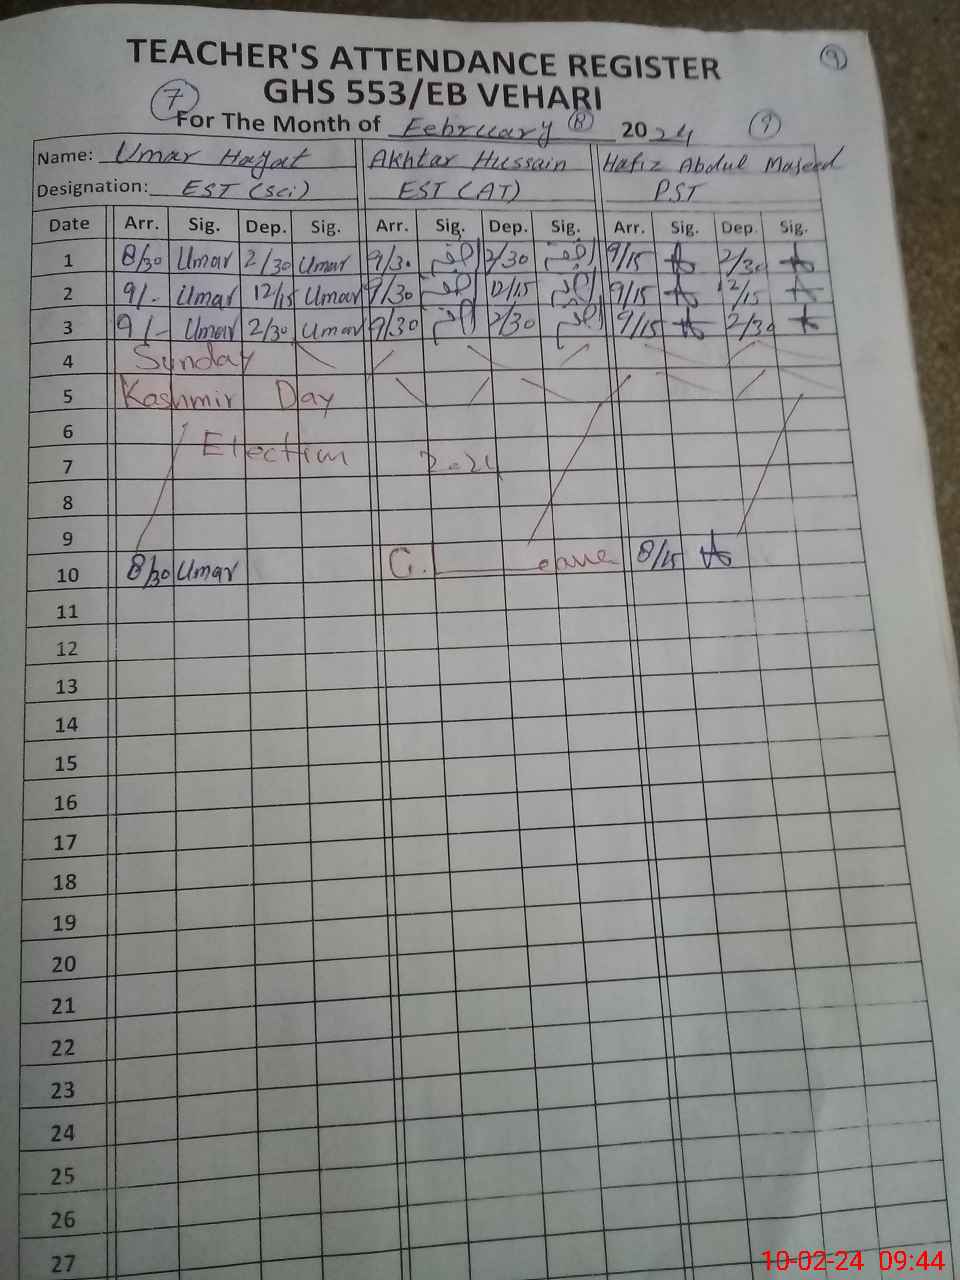 TEACHER'S ATTENDANCE REGISTER 9
GHS 553/EB VEHARI
7 For The Month of February 8 2024 9
Name: Umar Hayat Akhtar Hussain Hafiz Abdul Majeed
Designation: EST (Sci) EST (AT) PST
Date Arr. Sig. Dep. Sig. Arr. Sig. Dep. Sig. Arr. Sig. Dep. Sig.
1 8/30 Umar 2/30 Umar 9/30 2/30 9/15 2/30
2 9/- Umar 12/15 Umar 9/30 12/15 9/15 12/15
3 9/- Umar 2/30 Umar 9/30 2/30 9/15 2/30
4 Sunday
5 Kashmir Day
6
7 Election 2024
8
9
10 8/30 Umar 8/15
11
12
13
14
15
16
17
18
19
20
21
22
23
24
25
26
27
10-02-24 09:44